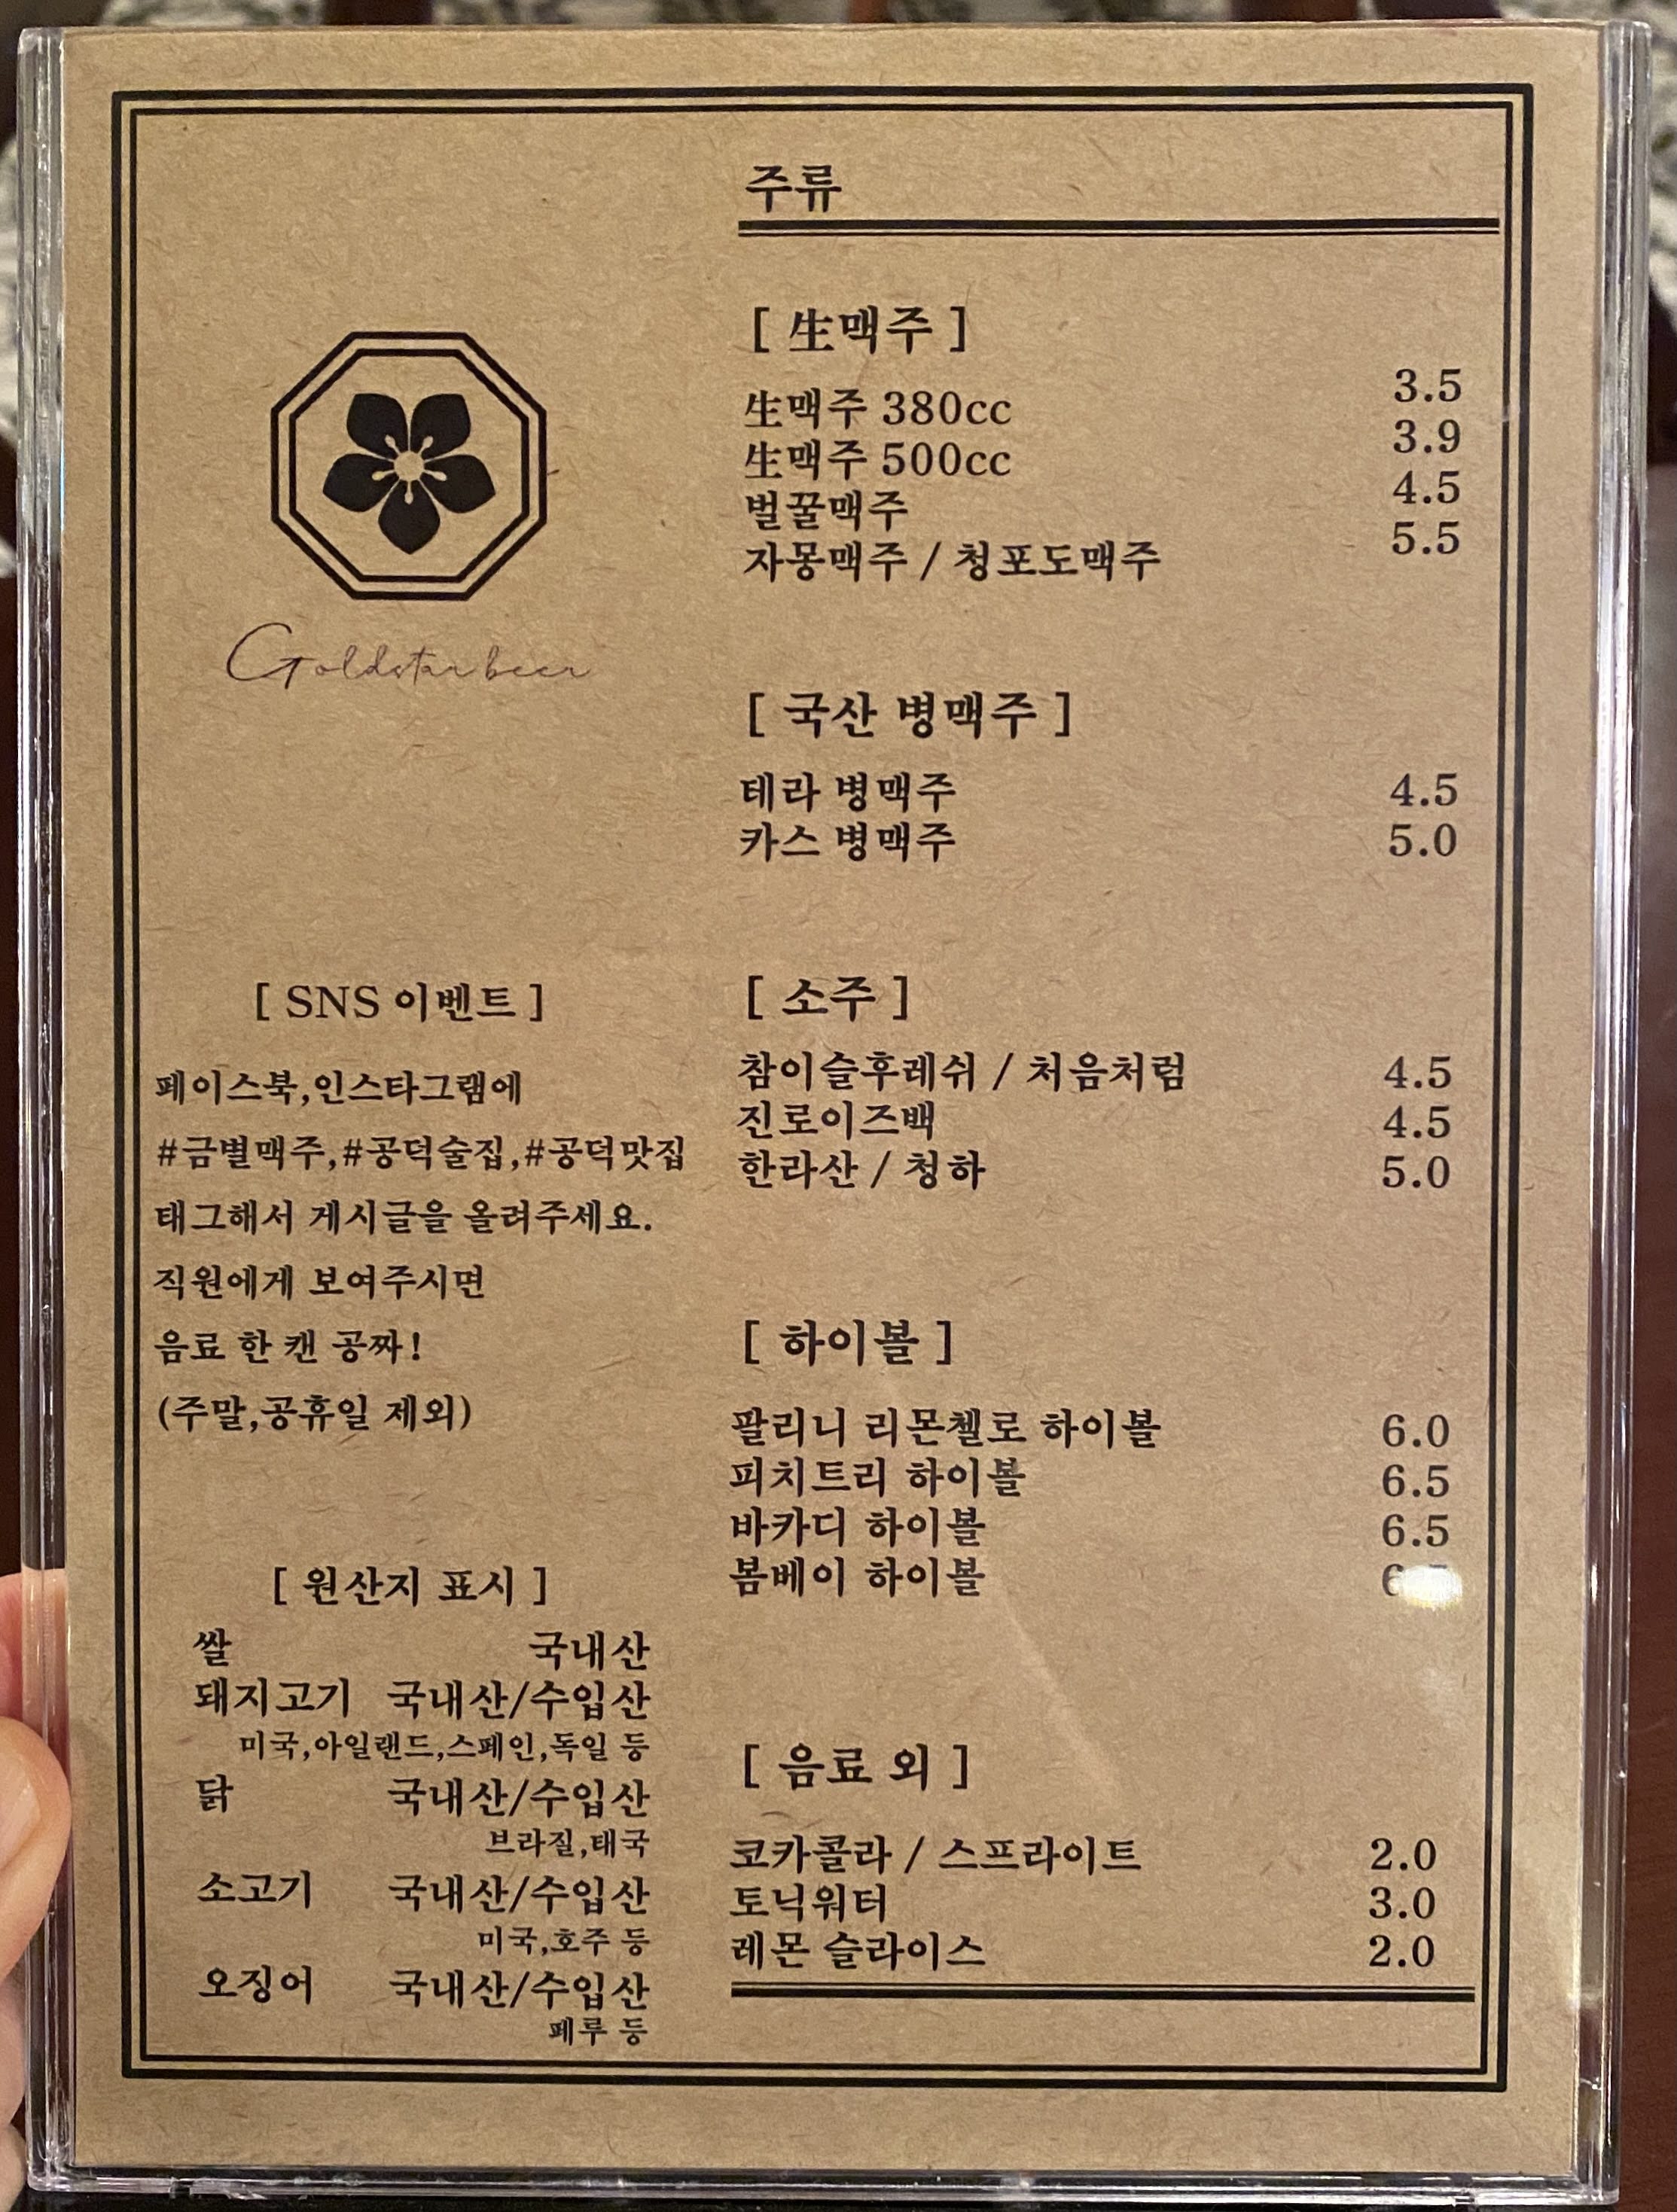 주류
[ 生맥주 ]
生맥주 380cc 3.5
生맥주 500cc 3.9
벌꿀맥주 4.5
자몽맥주 / 청포도맥주 5.5
[ 국산 병맥주 ]
테라 병맥주 4.5
카스 병맥주 5.0
[ 소주 ]
참이슬후레쉬 / 처음처럼 4.5
진로이즈백 4.5
한라산 / 청하 5.0
[ 하이볼 ]
팔리니 리몬첼로 하이볼 6.0
피치트리 하이볼 6.5
바카디 하이볼 6.5
봄베이 하이볼
[ 음료 외 ]
코카콜라 / 스프라이트 2.0
토닉워터 3.0
레몬 슬라이스 2.0
Goldstar beer
[ SNS 이벤트 ]
페이스북,인스타그램에
#금별맥주,#공덕술집,#공덕맛집
태그해서 게시글을 올려주세요.
직원에게 보여주시면
음료 한 캔 공짜!
(주말,공휴일 제외)
[ 원산지 표시 ]
쌀 국내산
돼지고기 국내산/수입산
미국,아일랜드,스페인,독일 등
닭 국내산/수입산
브라질,태국
소고기 국내산/수입산
미국,호주 등
오징어 국내산/수입산
페루 등